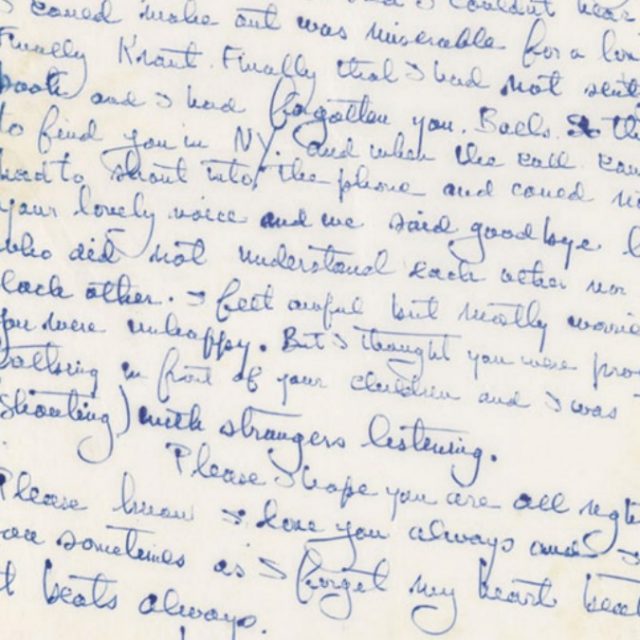 I could make out was miserable for a lon
Finally Kraut. Finally that I had not writ
book and I had forgotten you. Balls. So th
to find you in NY. and when the call cam
had to shout into the phone and could no
your lovely voice and we said goodbye l
who did not understand each other nor
each other. I feel awful but mostly worrie
you were unhappy. But I thought you were pro
talking in front of your children and I was
shouting) with strangers listening.
Please I hope you are all right
Please know I love you always and I
you sometimes as I forget my heart beat
it beats always.